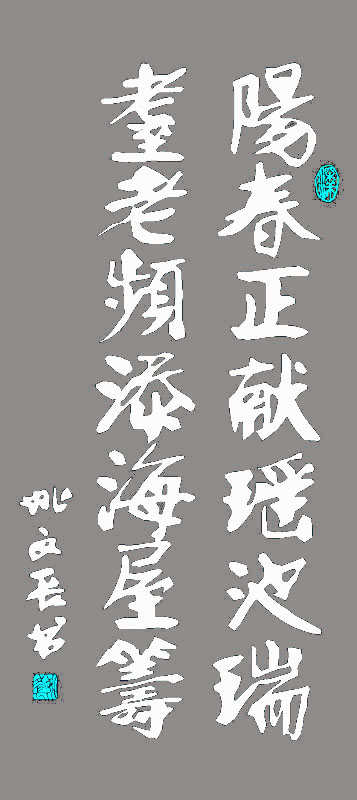 陽春正献瑶池瑞
耋老頻添海屋籌
姚文長书